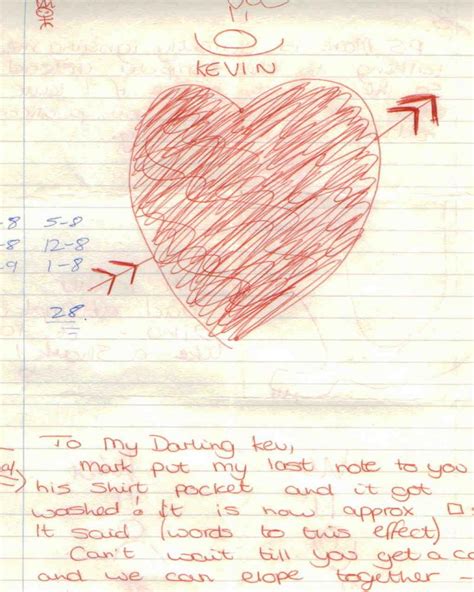 KEVIN
-8 5-8
-8 12-8
-9 1-8
28.
To My Darling Kev,
Mark put my last note to you
his shirt pocket and it got
washed! It is now approx □:
It said (words to this effect)
Can't wait till you get a ca
and we can elope together -